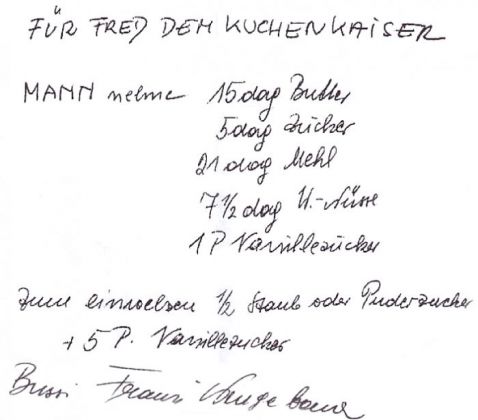 FÜR FRED DEM KUCHENKAISER
MANN nehme 15 dag Butter
5 dag Zucker
21 dag Mehl
7 1/2 dag H.-Nüsse
1 P Vanillezucker
zum einwelzen 1/2 Staub oder Puderzucker
+ 5 P. Vanillezucker
Bussi Franzi